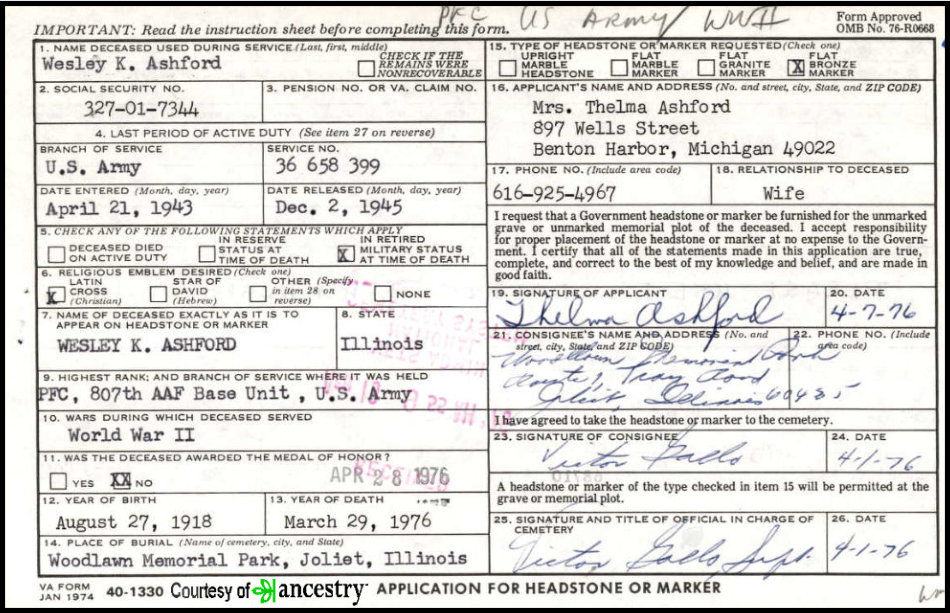 PFC US ARMY WWII
IMPORTANT: Read the instruction sheet before completing this form.
Form Approved
OMB No. 76-R0668
1. NAME DECEASED USED DURING SERVICE (Last, first, middle)
Wesley K. Ashford
CHECK IF THE
REMAINS WERE
NONRECOVERABLE
2. SOCIAL SECURITY NO.
327-01-7344
3. PENSION NO. OR VA. CLAIM NO.
4. LAST PERIOD OF ACTIVE DUTY (See item 27 on reverse)
BRANCH OF SERVICE
U.S. Army
SERVICE NO.
36 658 399
DATE ENTERED (Month, day, year)
April 21, 1943
DATE RELEASED (Month, day, year)
Dec. 2, 1945
5. CHECK ANY OF THE FOLLOWING STATEMENTS WHICH APPLY
DECEASED DIED
ON ACTIVE DUTY
IN RESERVE
STATUS AT
TIME OF DEATH
X
IN RETIRED
MILITARY STATUS
AT TIME OF DEATH
6. RELIGIOUS EMBLEM DESIRED (Check one)
X
LATIN
CROSS
(Christian)
STAR OF
DAVID
(Hebrew)
OTHER (Specify
in item 28 on
reverse)
NONE
7. NAME OF DECEASED EXACTLY AS IT IS TO
APPEAR ON HEADSTONE OR MARKER
WESLEY K. ASHFORD
8. STATE
Illinois
9. HIGHEST RANK; AND BRANCH OF SERVICE WHERE IT WAS HELD
PFC, 807th AAF Base Unit , U.S. Army
10. WARS DURING WHICH DECEASED SERVED
World War II
11. WAS THE DECEASED AWARDED THE MEDAL OF HONOR?
YES XX NO
APR 28 1976
12. YEAR OF BIRTH
August 27, 1918
13. YEAR OF DEATH
March 29, 1976
14. PLACE OF BURIAL (Name of cemetery, city, and State)
Woodlawn Memorial Park, Joliet, Illinois
15. TYPE OF HEADSTONE OR MARKER REQUESTED (Check one)
UPRIGHT
MARBLE
HEADSTONE
FLAT
MARBLE
MARKER
FLAT
GRANITE
MARKER
X
FLAT
BRONZE
MARKER
16. APPLICANT'S NAME AND ADDRESS (No. and street, city, State, and ZIP CODE)
Mrs. Thelma Ashford
897 Wells Street
Benton Harbor, Michigan 49022
17. PHONE NO. (Include area code)
616-925-4967
18. RELATIONSHIP TO DECEASED
Wife
I request that a Government headstone or marker be furnished for the unmarked
grave or unmarked memorial plot of the deceased. I accept responsibility
for proper placement of the headstone or marker at no expense to the Govern-
ment. I certify that all of the statements made in this application are true,
complete, and correct to the best of my knowledge and belief, and are made in
good faith.
19. SIGNATURE OF APPLICANT
Thelma Ashford
20. DATE
4-7-76
21. CONSIGNEE'S NAME AND ADDRESS (No. and
street, city, State, and ZIP CODE)
Woodlawn Memorial Park
Route 1, Road
Joliet, Illinois 60435
22. PHONE NO. (Include
area code)
I have agreed to take the headstone or marker to the cemetery.
23. SIGNATURE OF CONSIGNEE
Victor
24. DATE
4-1-76
A headstone or marker of the type checked in item 15 will be permitted at the
grave or memorial plot.
25. SIGNATURE AND TITLE OF OFFICIAL IN CHARGE OF
CEMETERY
Victor Supt.
26. DATE
4-1-76
VA FORM
JAN 1974
40-1330 Courtesy of ancestry APPLICATION FOR HEADSTONE OR MARKER